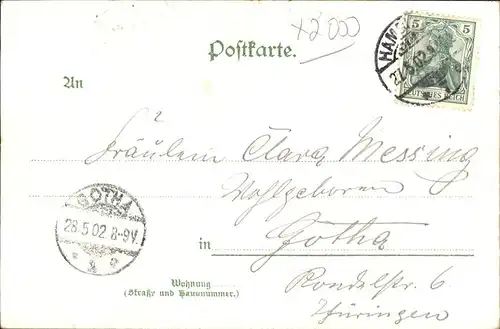 x2000
Postkarte.
5 5
DEUTSCHES REICH
27.5.02.
An
Fräulein Clara Messing
Wohlgeboren
GOTHA
28.5.02. 8-9V.
in Gotha
Wohnung
(Straße und Hausnummer.)
Rondelstr. 6
Thüringen